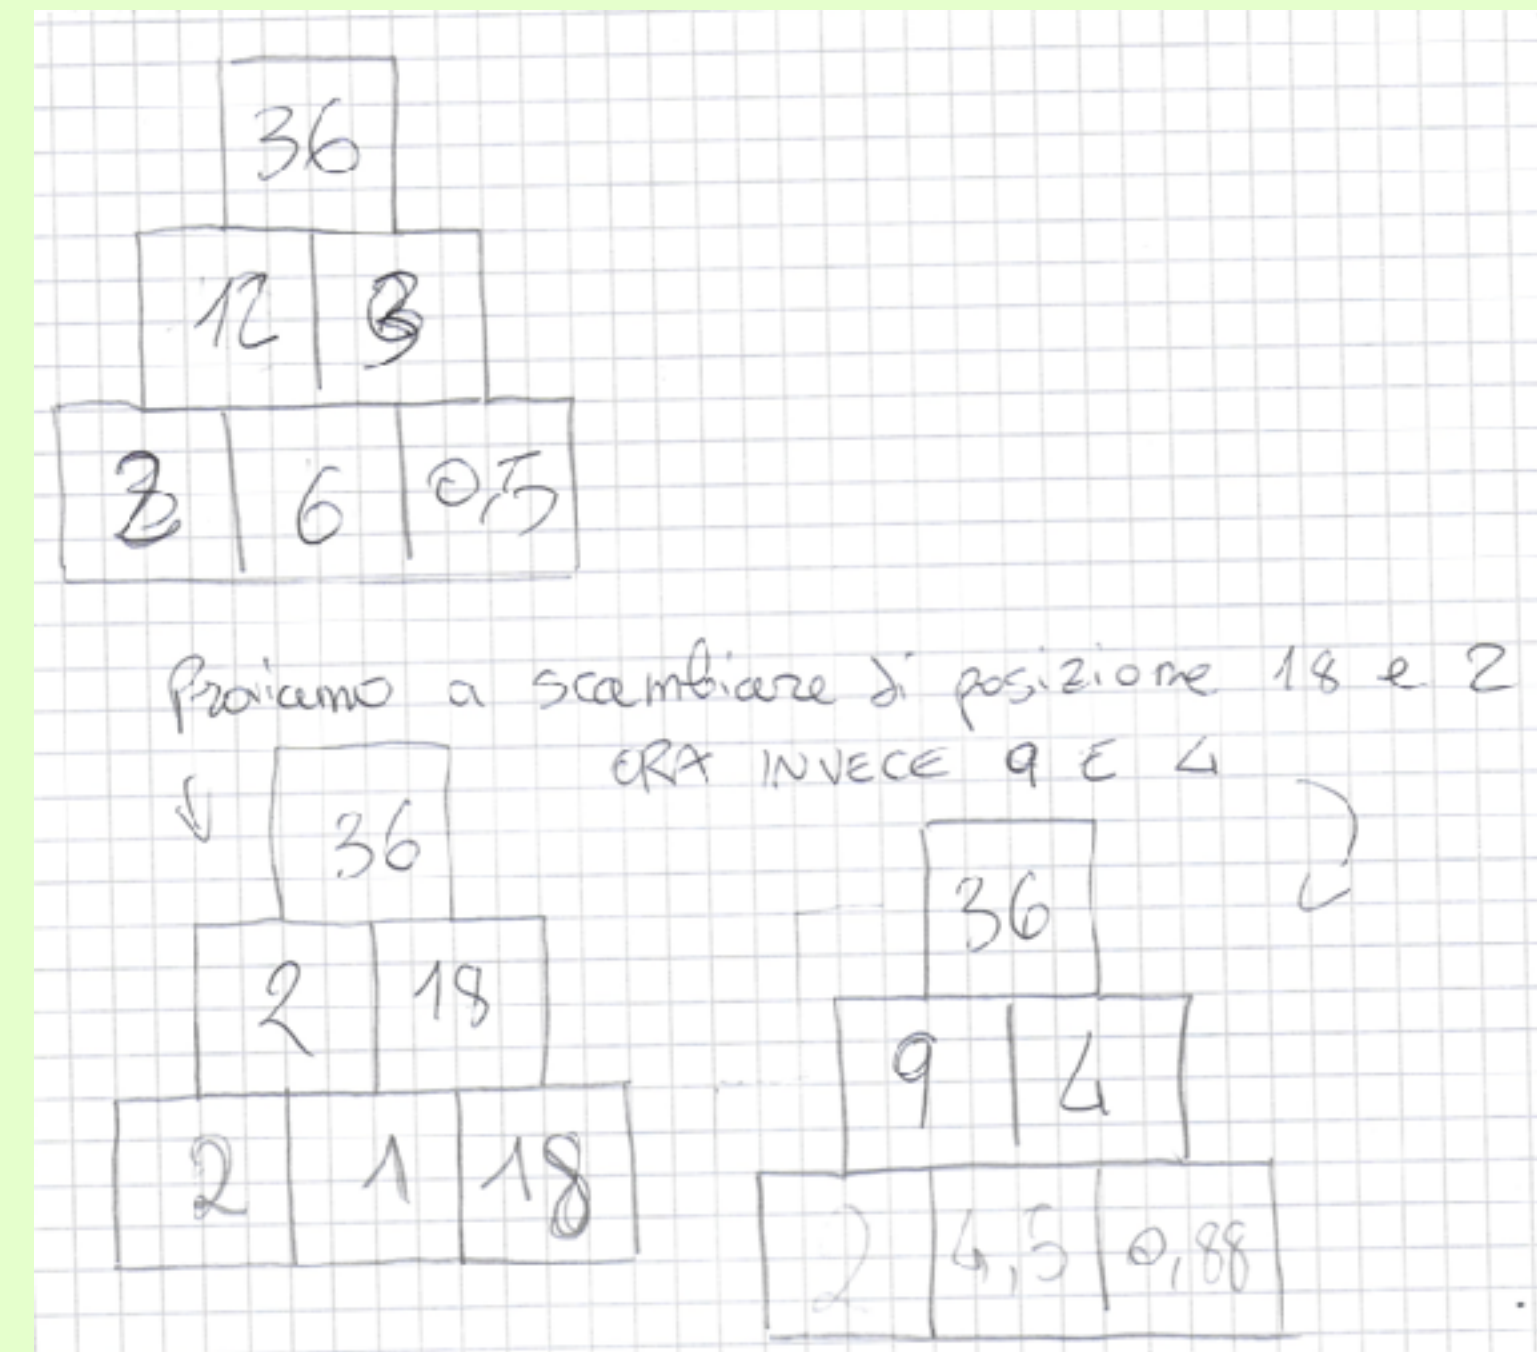 36
12 3
2 6 0,5
Proviamo a scambiare di posizione 18 e 2
ORA INVECE 9 E 4
36
2 18
2 1 18
36
9 4
2 4,5 0,88